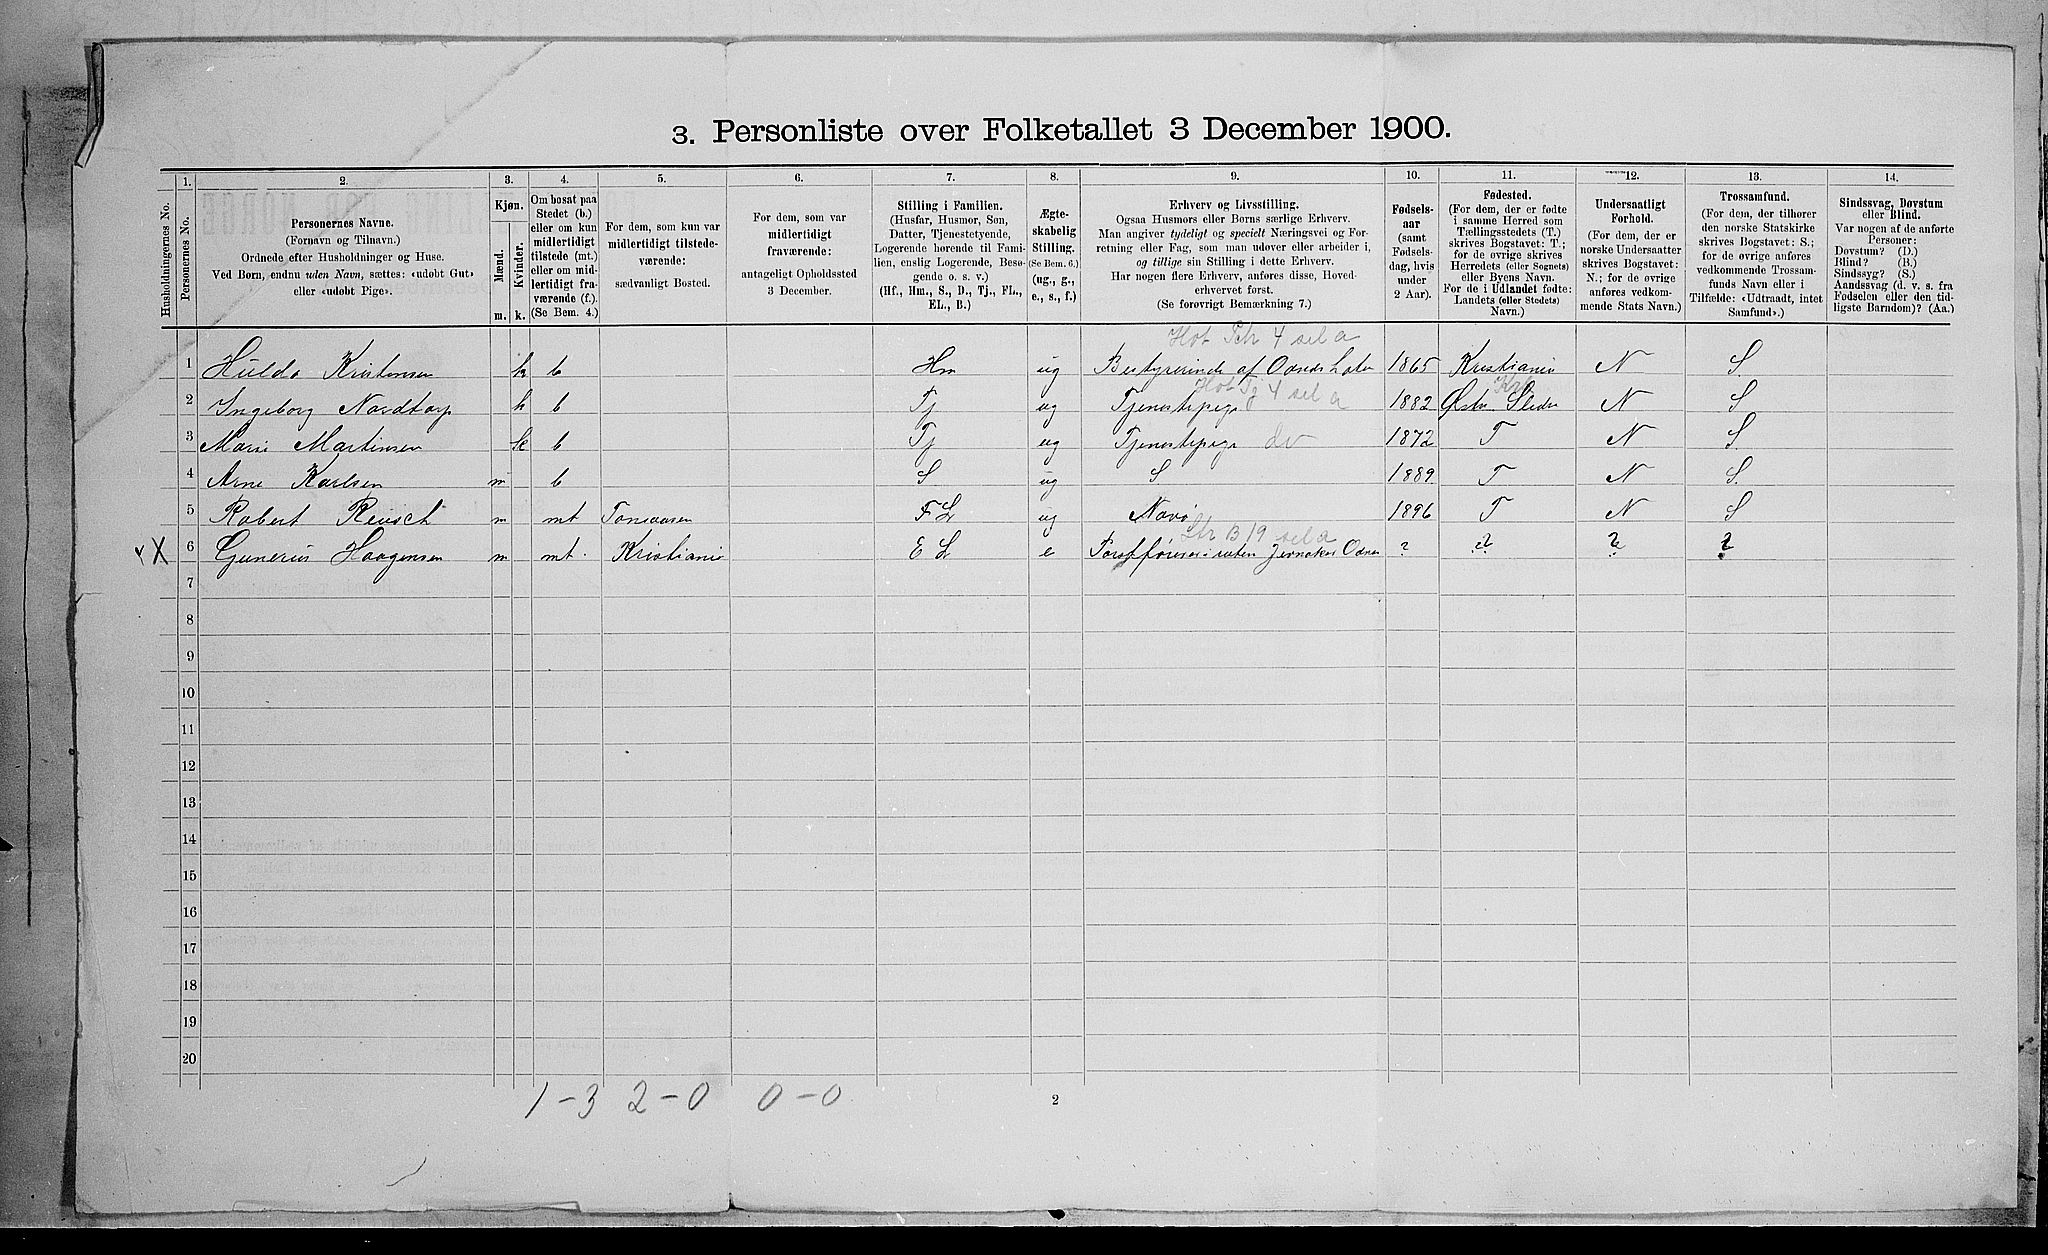 3. Personliste over Folketallet 3 December 1900.
1. 2. 3. 4. 5. 6. 7. 8. 9. 10. 11. 12. 13. 14.
Husholdningernes No.
Personernes No.
Personernes Navne.
(Fornavn og Tilnavn.)
Ordnede efter Husholdninger og Huse.
Ved Børn, endnu uden Navn, sættes: «udøbt Gut»
eller «udøbt Pige».
Kjøn.
Mænd.
Kvinder.
m. k.
Om bosat paa
Stedet (b.)
eller om kun
midlertidigt
tilstede (mt.)
eller om mid-
lertidigt fra-
værende (f.).
(Se Bem. 4.)
For dem, som kun var
midlertidigt tilstede-
værende:
sædvanligt Bosted.
For dem, som var
midlertidigt
fraværende:
antageligt Opholdssted
3 December.
Stilling i Familien.
(Husfar, Husmor, Søn,
Datter, Tjenestetyende,
Logerende hørende til Fami-
lien, enslig Logerende, Besø-
gende o. s. v.)
(Hf., Hm., S., D., Tj., FL.,
EL., B.)
Ægte-
skabelig
Stilling.
(Se Bem. 6.)
(ug., g.,
e., s., f.)
Erhverv og Livsstilling.
Ogsaa Husmors eller Børns særlige Erhverv.
Man angiver tydeligt og specielt Næringsvei og For-
retning eller Fag, som man udøver eller arbeider i,
og tillige sin Stilling i dette Erhverv.
Har nogen flere Erhverv, anføres disse, Hoved-
erhvervet først.
(Se forøvrigt Bemærkning 7.)
Fødsels-
aar
(samt
Fødsels-
dag, hvis
under
2 Aar).
Fødested.
(For dem, der er fødte
i samme Herred som
Tællingsstedets (T.)
skrives Bogstavet: T.;
for de øvrige skrives
Herredets (eller Sognets)
eller Byens Navn.
For de i Udlandet fødte:
Landets (eller Stedets)
Navn.)
Undersaatligt
Forhold.
(For dem, der er
norske Undersaatter
skrives Bogstavet:
N.; for de øvrige
anføres vedkom-
mende Stats Navn.)
Trossamfund.
(For dem, der tilhører
den norske Statskirke
skrives Bogstavet: S.;
for de øvrige anføres
vedkommende Trossam-
funds Navn eller i
Tilfælde: «Udtraadt, intet
Samfund».)
Sindssvag, Døvstum
eller Blind.
Var nogen af de anførte
Personer:
Døvstum? (D.)
Blind? (B.)
Sindssyg? (S.)
Aandssvag (d. v. s. fra
Fødselen eller den tid-
ligste Barndom)? (Aa.)
4 sel a
1 Hulda Kristensen k b Hm ug Bestyrerinde af 1865 Kristiania N S.
4 sel a
2 Ingeborg Nordtorp k b Tj ug Tjenestepige 1882 Østre Slidre N S
3 Marie Martinsen k b Tj ug Tjenestepige do 1872 T N S
4 Arne Karlsen m b S ug S 1889 T N S.
5 Robert Reusch m mt Tonsaasen FL ug 1896 T N S
B 19 sel a
X 6 Gunerius Haagensen m mt. Kristiania EL e ? ? ? ?
7
8
9
10
11
12
13
14
15
16
17
18
19
20
1 - 3 2 - 0 0 - 0
2